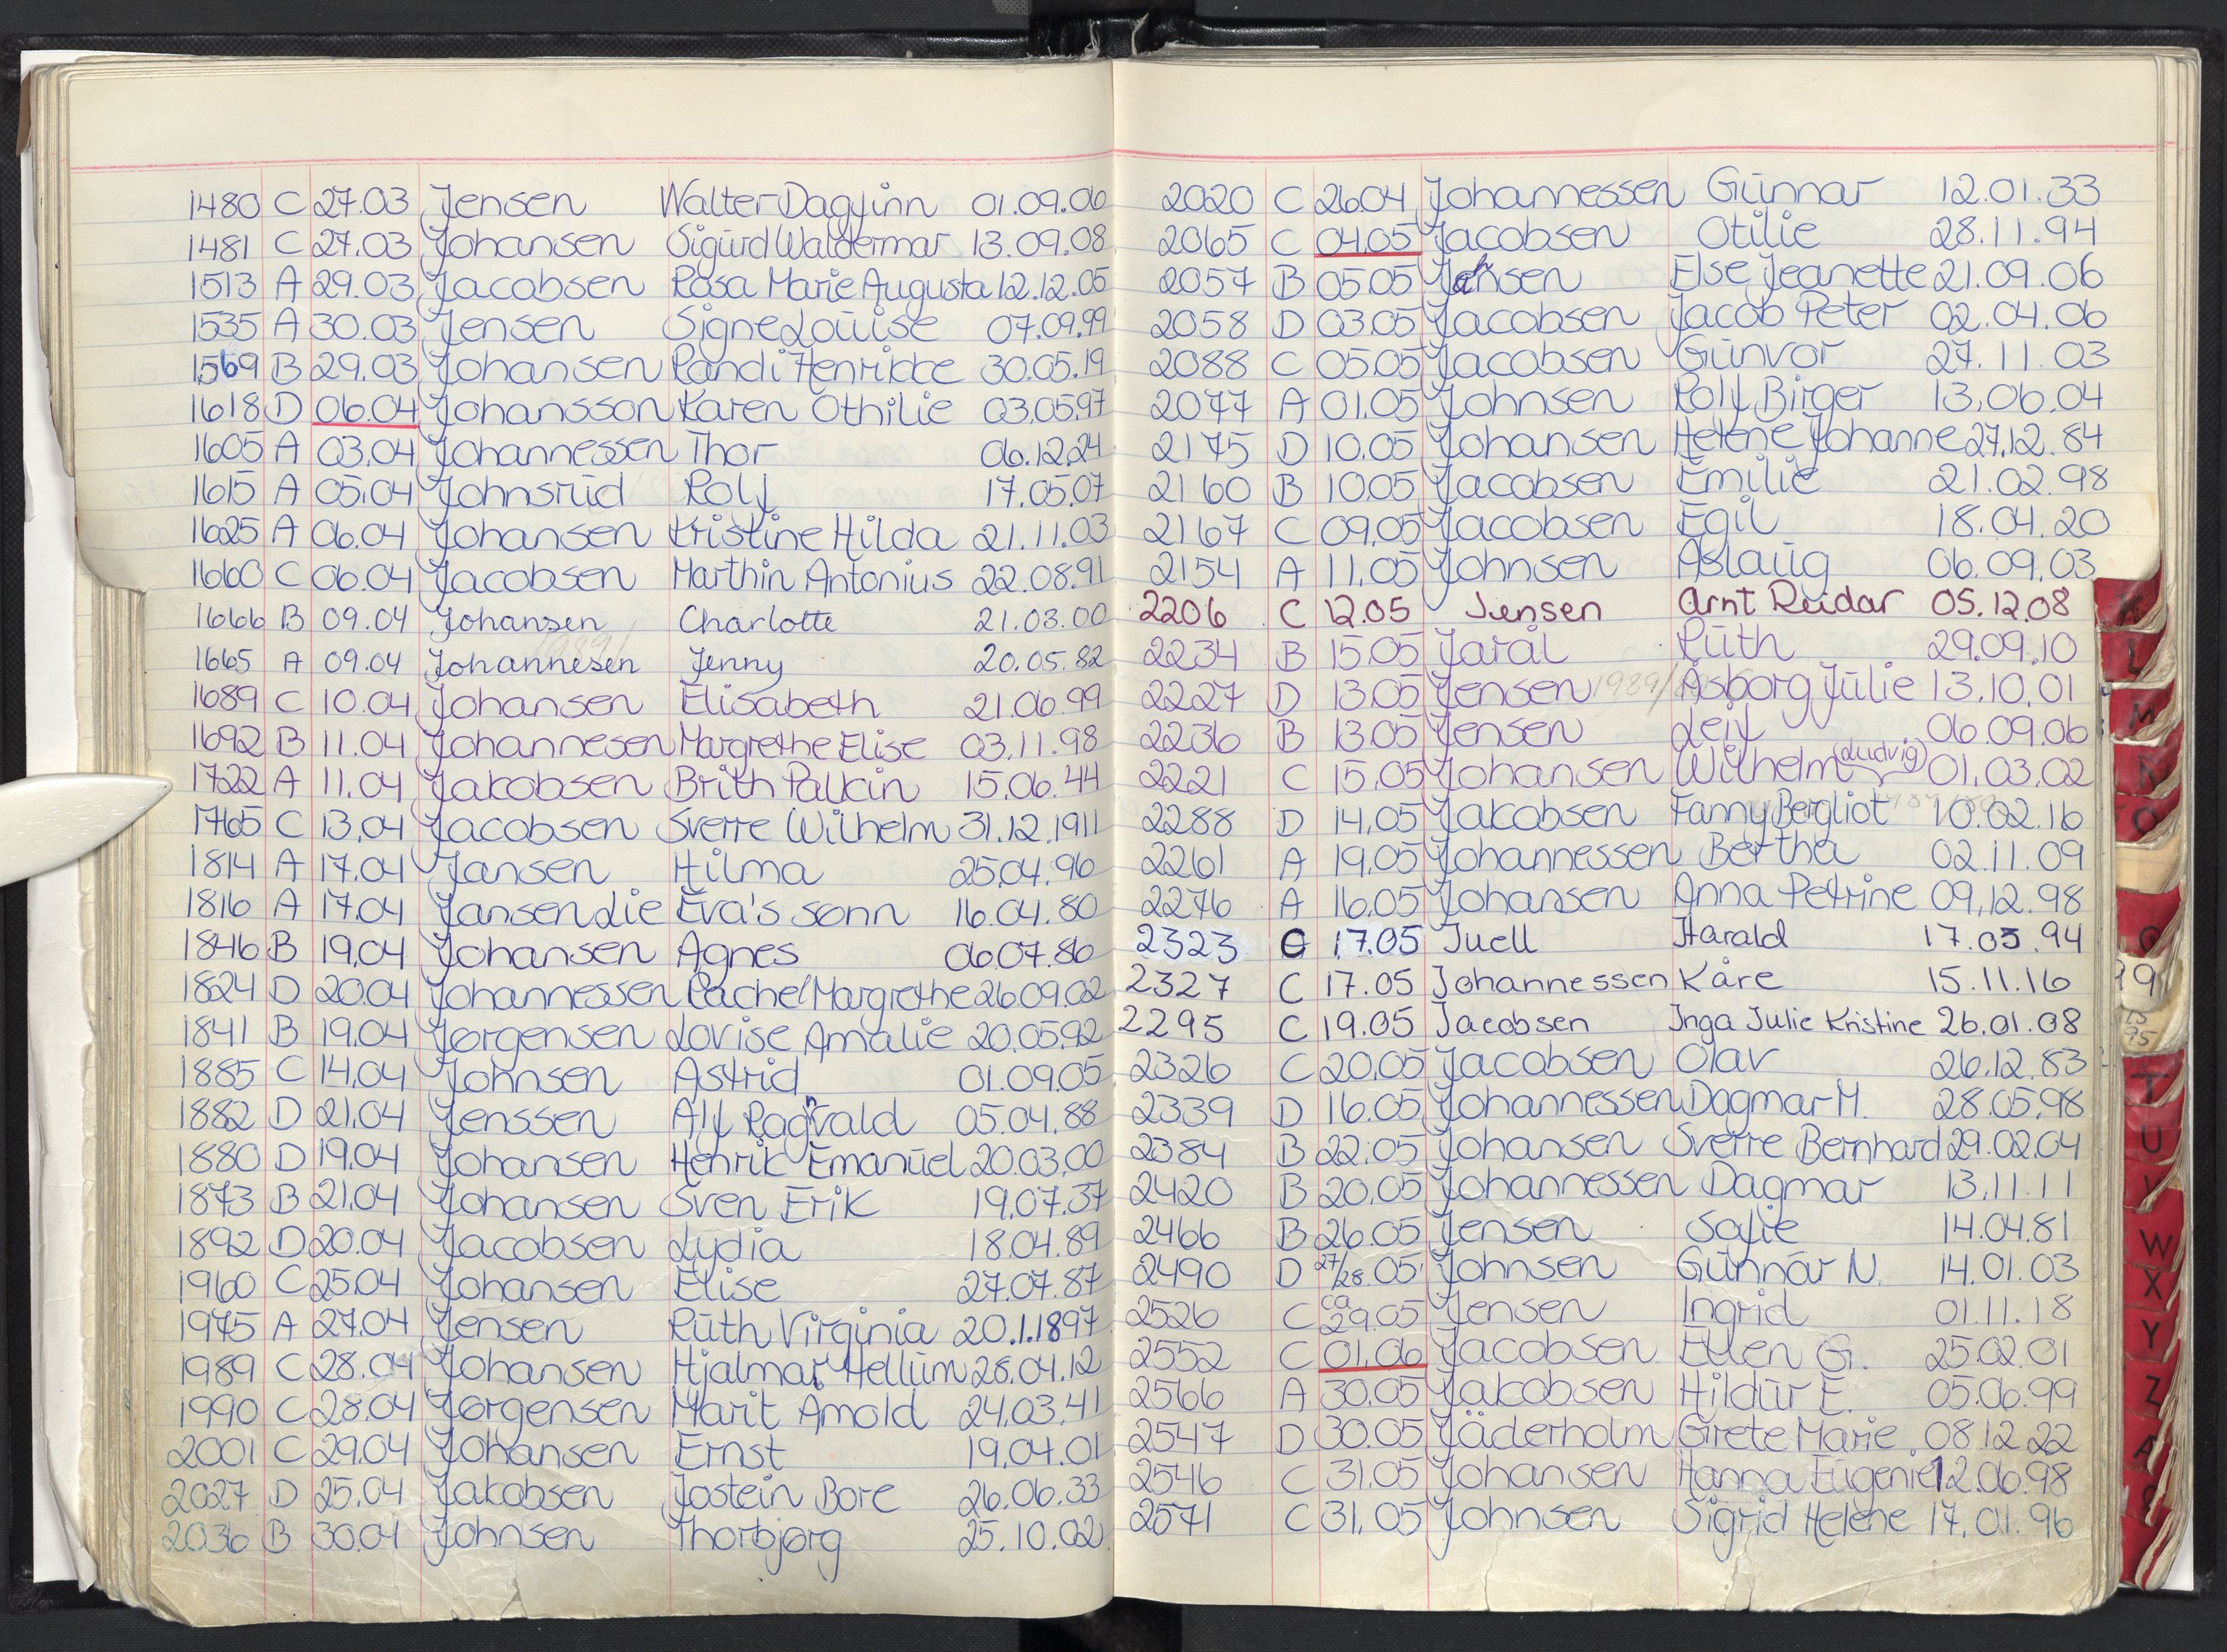 1480 C 27.03 Jensen Walter Dagfinn 01.09.06
1481 C 27.03 Johansen Sigurd Waldermar 13.09.08
1513 A 29.03 Jacobsen Rosa Marie Augusta 12.12.05
1535 A 30.03 Jensen Signe Louise 07.09.99
1569 B 29.03 Johansen Randi Henrikke 30.05.19
1618 D 06.04 Johansson Karen Othilie 03.05.97
1605 A 03.04 Johannessen Thor 06.12.24
1615 A 05.04 Johnsrud Rolf 17.05.07
1625 A 06.04 Johansen Kristine Hilda 21.11.03
1660 C 06.04 Jacobsen Marthin Antonius 22.08.91
1666 B 09.04 Johansen Charlotte 21.03.00
1665 A 09.04 Johannesen Jenny 20.05.82
1689 C 10.04 Johansen Elisabeth 21.06.99
1692 B 11.04 Johannesen Margrethe Elise 03.11.98
1722 A 11.04 Jakobsen Brith Palkin 15.06.44
1765 C 13.04 Jacobsen Sverre Wilhelm 31.12.1911
1814 A 17.04 Jansen Hilma 25.04.96
1816 A 17.04 Jansen Lie Eva's sønn 16.04.80
1846 B 19.04 Johansen Agnes 06.07.86
1824 D 20.04 Johannessen Rachel Margrethe 26.09.02
1841 B 19.04 Jørgensen Lovise Amalie 20.05.92
1885 C 14.04 Johnsen Astrid 01.09.05
1882 D 21.04 Jenssen Alf Ragnvald 05.04.88
1880 D 19.04 Johansen Henrik Emanuel 20.03.00
1873 B 21.04 Johansen Sven Erik 19.07.37
1892 D 20.04 Jacobsen Lydia 18.04.89
1960 C 25.04 Johansen Elise 27.07.87
1975 A 27.04 Jensen Ruth Virginia 20.1.1897
1989 C 28.04 Johansen Hjalmar Hellum 28.04.12
1990 C 28.04 Jørgensen Marit Arnold 24.03.41
2001 C 29.04 Johansen Ernst 19.04.01
2027 D 25.04 Jakobsen Jostein Bore 26.06.33
2036 B 30.04 Johnsen Thorbjørg 25.10.02
2020 C 26.04 Johannessen Gunnar 12.01.33
2065 C 04.05 Jacobsen Otilie 28.11.94
2057 B 05.05 Jensen Else Jeanette 21.09.06
2058 D 03.05 Jacobsen Jacob Peter 02.04.06
2088 C 05.05 Jacobsen Gunvor 27.11.03
2077 A 01.05 Johnsen Rolf Birger 13.06.04
2175 D 10.05 Johansen Helene Johanne 27.12.84
2160 B 10.05 Jacobsen Emilie 21.02.98
2167 C 09.05 Jacobsen Egil 18.04.20
2154 A 11.05 Johnsen Aslaug 06.09.03
2206 C 12.05 Jensen Arnt Reidar 05.12.08
2234 B 15.05 Jarål Ruth 29.09.10
2227 D 13.05 Jensen 1989/ Åsborg Julie 13.10.01
2236 B 13.05 Jensen Leif 06.09.06
2221 C 15.05 Johansen Wilhelm (Ludvig) 01.03.02
2288 D 14.05 Jakobsen Fanny Bergliot 10.02.16
2261 A 19.05 Johannessen Bertha 02.11.09
2276 A 16.05 Johansen Anna Petrine 09.12.98
2323 C 17.05 Juell Harald 17.05.94
2327 C 17.05 Johannessen Kåre 15.11.16
2295 C 19.05 Jacobsen Inga Julie Kristine 26.01.08
2326 C 20.05 Jacobsen Olav 26.12.83
2339 D 16.05 Johannessen Dagmar M. 28.05.98
2384 B 22.05 Johansen Sverre Bernhard 29.02.04
2420 B 20.05 Johannessen Dagmar 13.11.11
2466 B 26.05 Jensen Sofie 14.04.81
2490 D 27/28.05 Johnsen Gunnar N. 14.01.03
2526 C ca 29.05 Jensen Ingrid 01.11.18
2552 C 01.06 Jacobsen Ellen G. 25.02.01
2566 A 30.05 Jakobsen Hildur E. 05.06.99
2547 D 30.05 Jäderholm Grete Marie 08.12.22
2546 C 31.05 Johansen Hanna Eugenie 12.06.98
2571 C 31.05 Johnsen Sigrid Helene 17.01.96
L
M
N
O
T
U
V
W
X
Y
Z